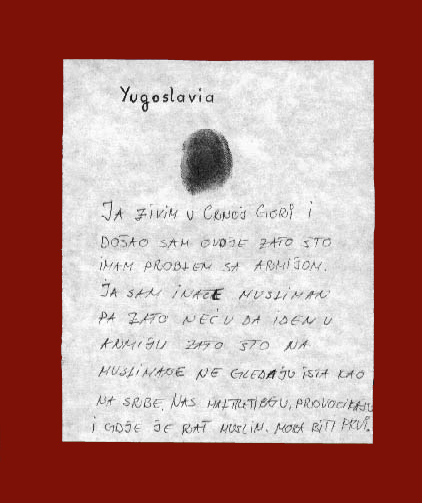 Yugoslavia
JA ŽIVIM U CRNOJ GORI I
DOŠAO SAM OVDJE ZATO ŠTO
IMAM PROBLEM SA ARMIJOM.
JA SAM INAČE MUSLIMAN
PA ZATO NEĆU DA IDEM U
ARMIJU ZATO ŠTO NA
MUSLIMANE NE GLEDAJU ISTA KAO
NA SRBE. NAS MALTRETIRAJU, PROVOCIRAJU
I GDJE JE RAT MUSLIM. MORA BITI PRVI.